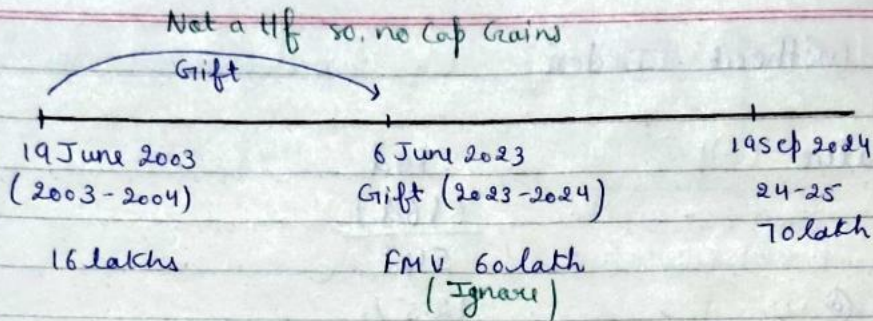 Not a tff so, no Cap Gains
Gift
19 June 2003
(2003-2004)
16 lakhs
6 June 2023
Gift (2023-2024)
FMV 60 lakh
(Ignore)
19 Sep 2024
24-25
70 lakh